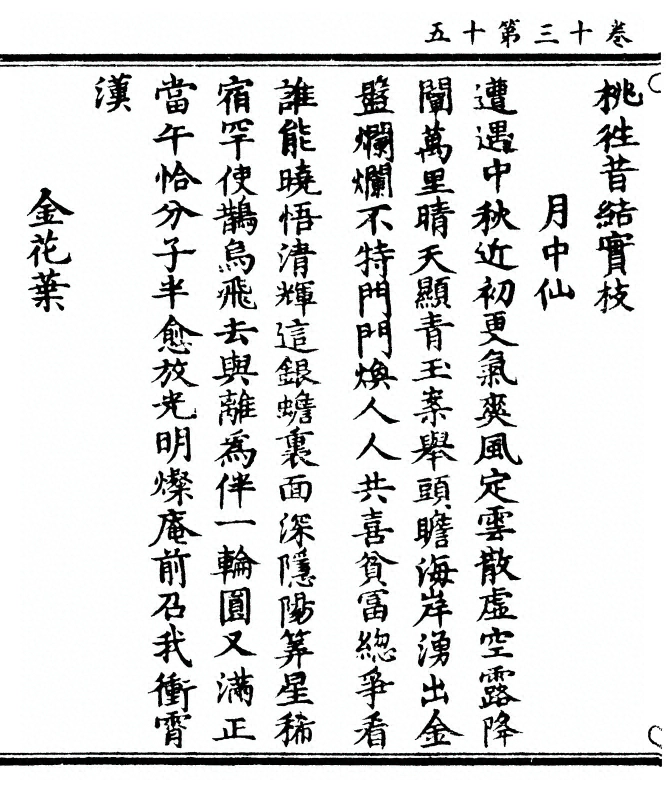 卷十三第十五
桃徃昔結實枝
月中仙
遭遇中秋近初更氣爽風定雲散虛空露降
闡萬里晴天顯青玉案舉頭瞻海岸湧出金
盤爛爛不特門門煥人人共喜貧冨緫爭看
誰能曉悟清輝這銀蟾裏面深隱陽筭星稀
宿罕使鵲烏飛去與離為伴一輪圓又滿正
當午恰分子半愈放光明燦庵前召我衝霄
漢
金花葉